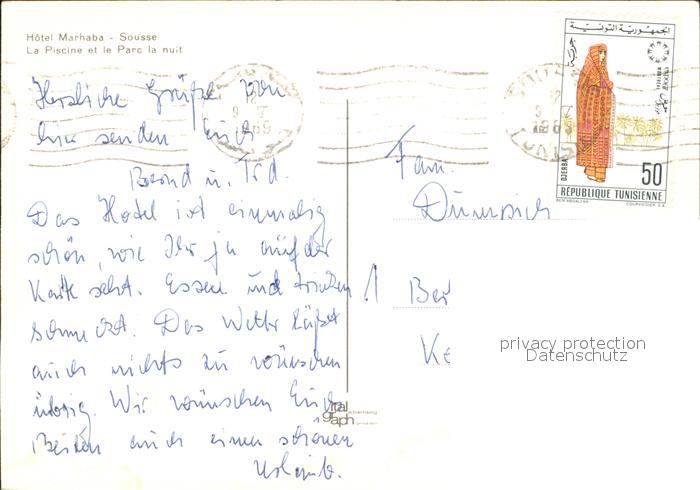 Hôtel Marhaba - Sousse
La Piscine et le Parc la nuit
Herzliche Grüße von
hier senden Euch
Bernd u.
Das Hotel ist einmalig
schön, wie Ihr ja auf der
Karte seht. Essen und trinken
schmeckt. Das Wetter läßt
auch nichts zu wünschen
übrig. Wir wünschen Euch
Beiden auch einen schönen
Urlaub.
Fam.
privacy protection
Datenschutz
الجمهورية التونسية
DJERBA
50
RÉPUBLIQUE TUNISIENNE
1969